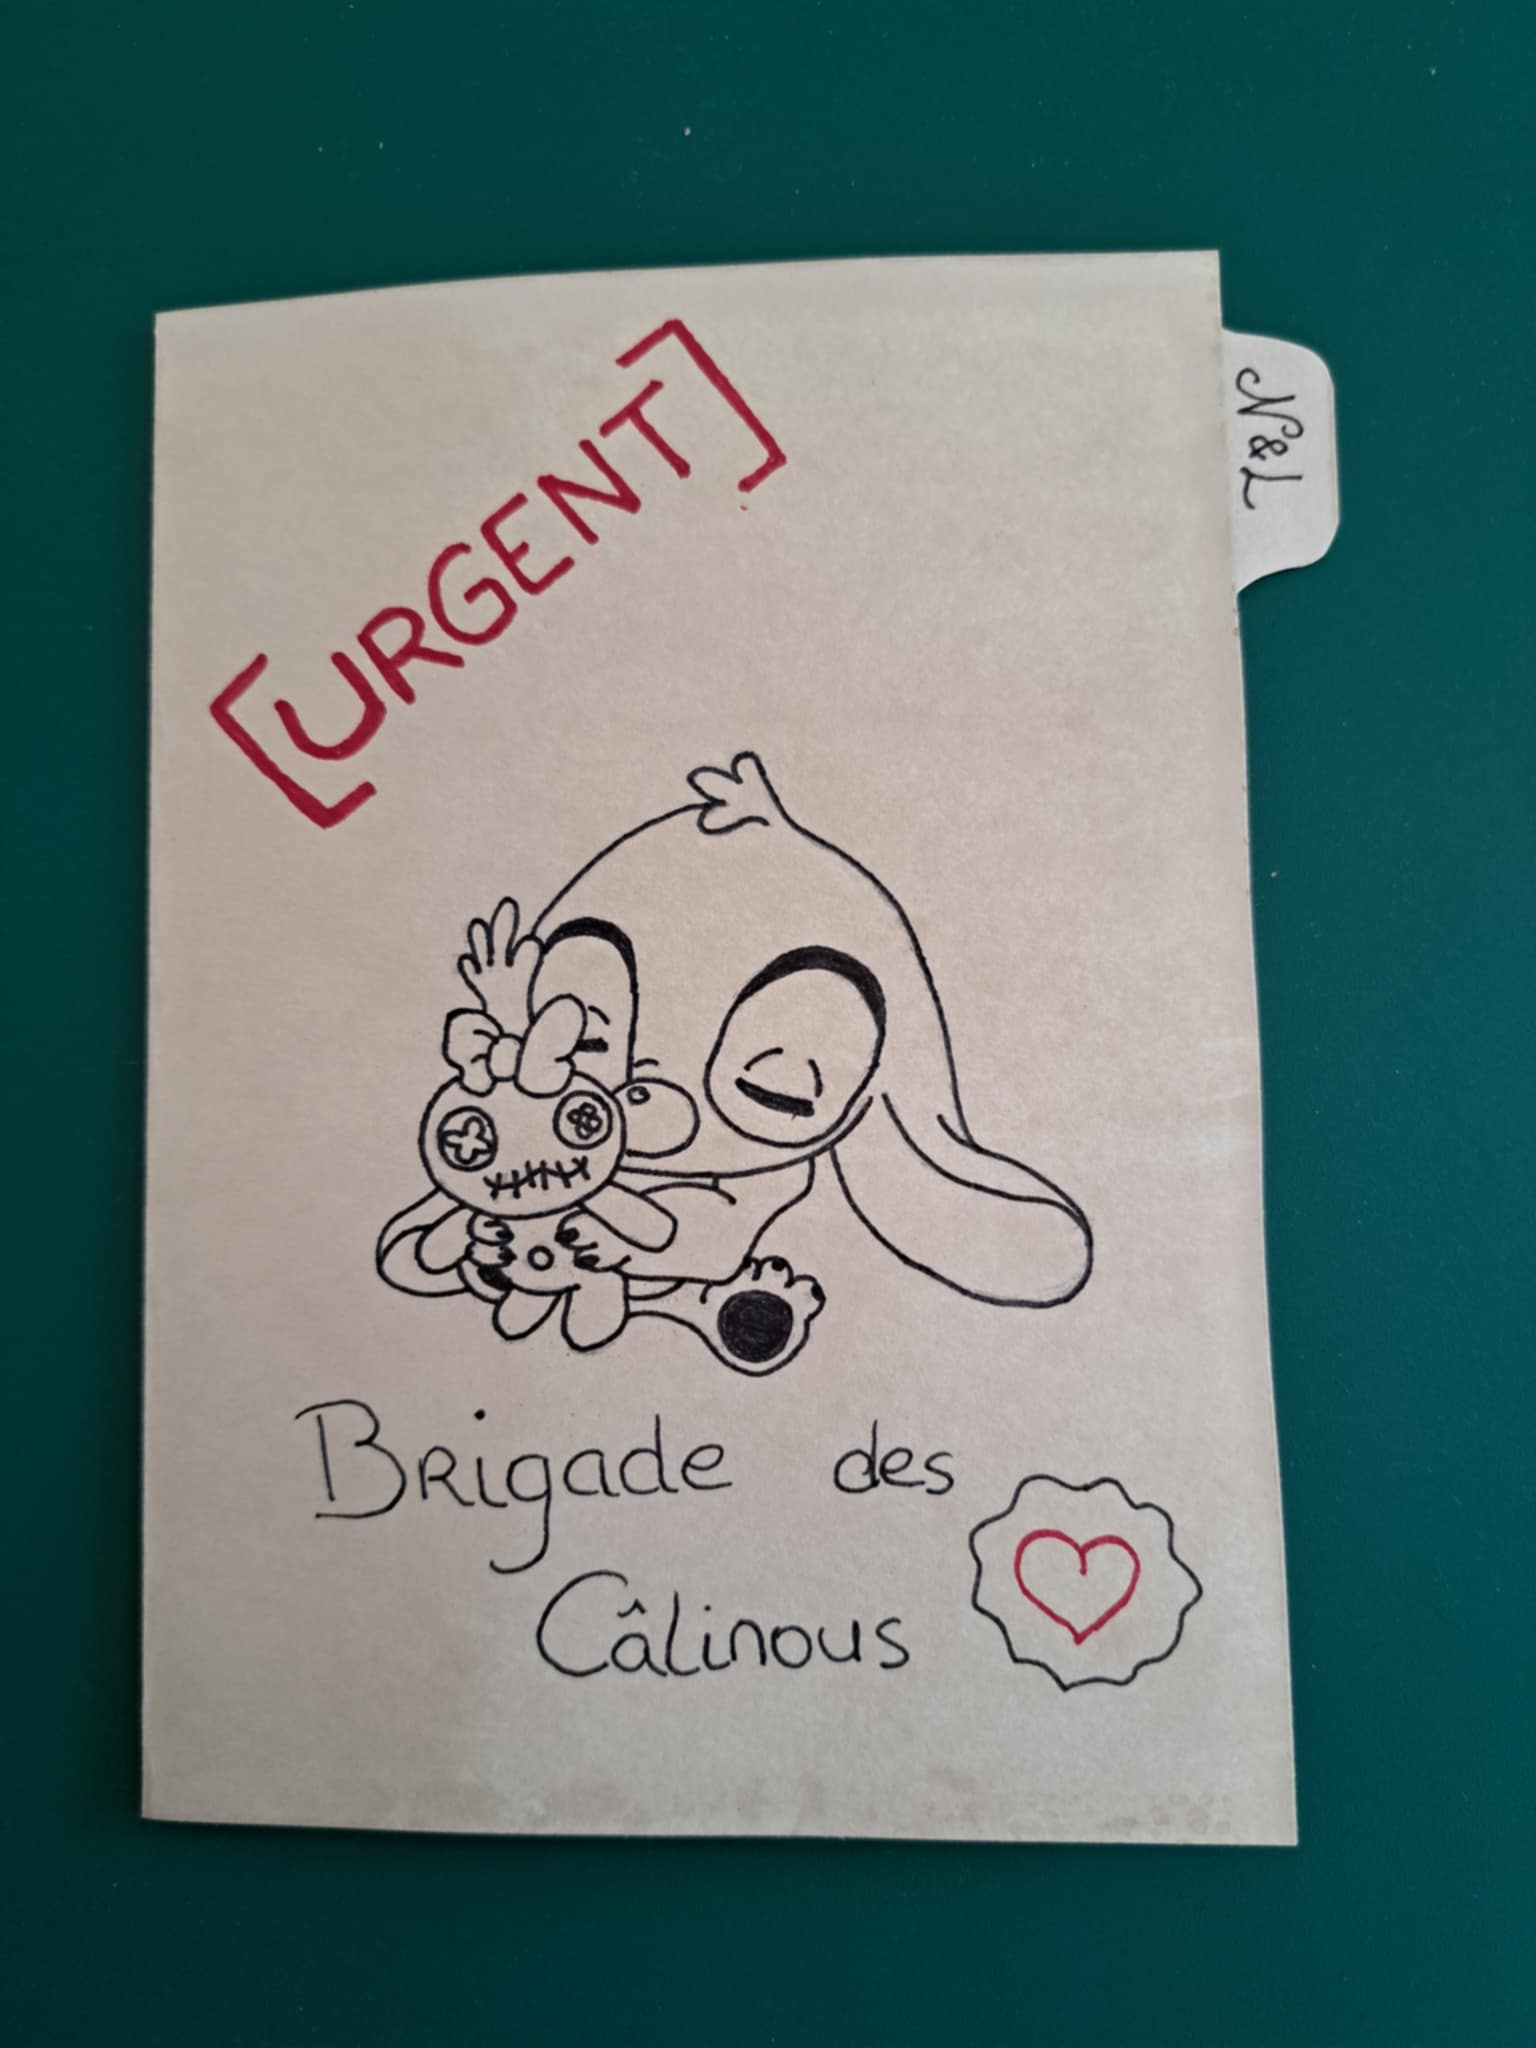 [URGENT]
N&L
Brigade des
Câlinous